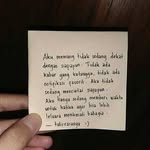 Aku memang tidak sedang dekat
dengan siapapun. Tidak ada
kabar yang kutunggu, tidak ada
notifikasi favorit. Aku tidak
sedang mencintai siapapun.
Aku hanya sedang memberi waktu
untuk hatiku agar bisa lebih
leluasa menikmati bahagia
:)